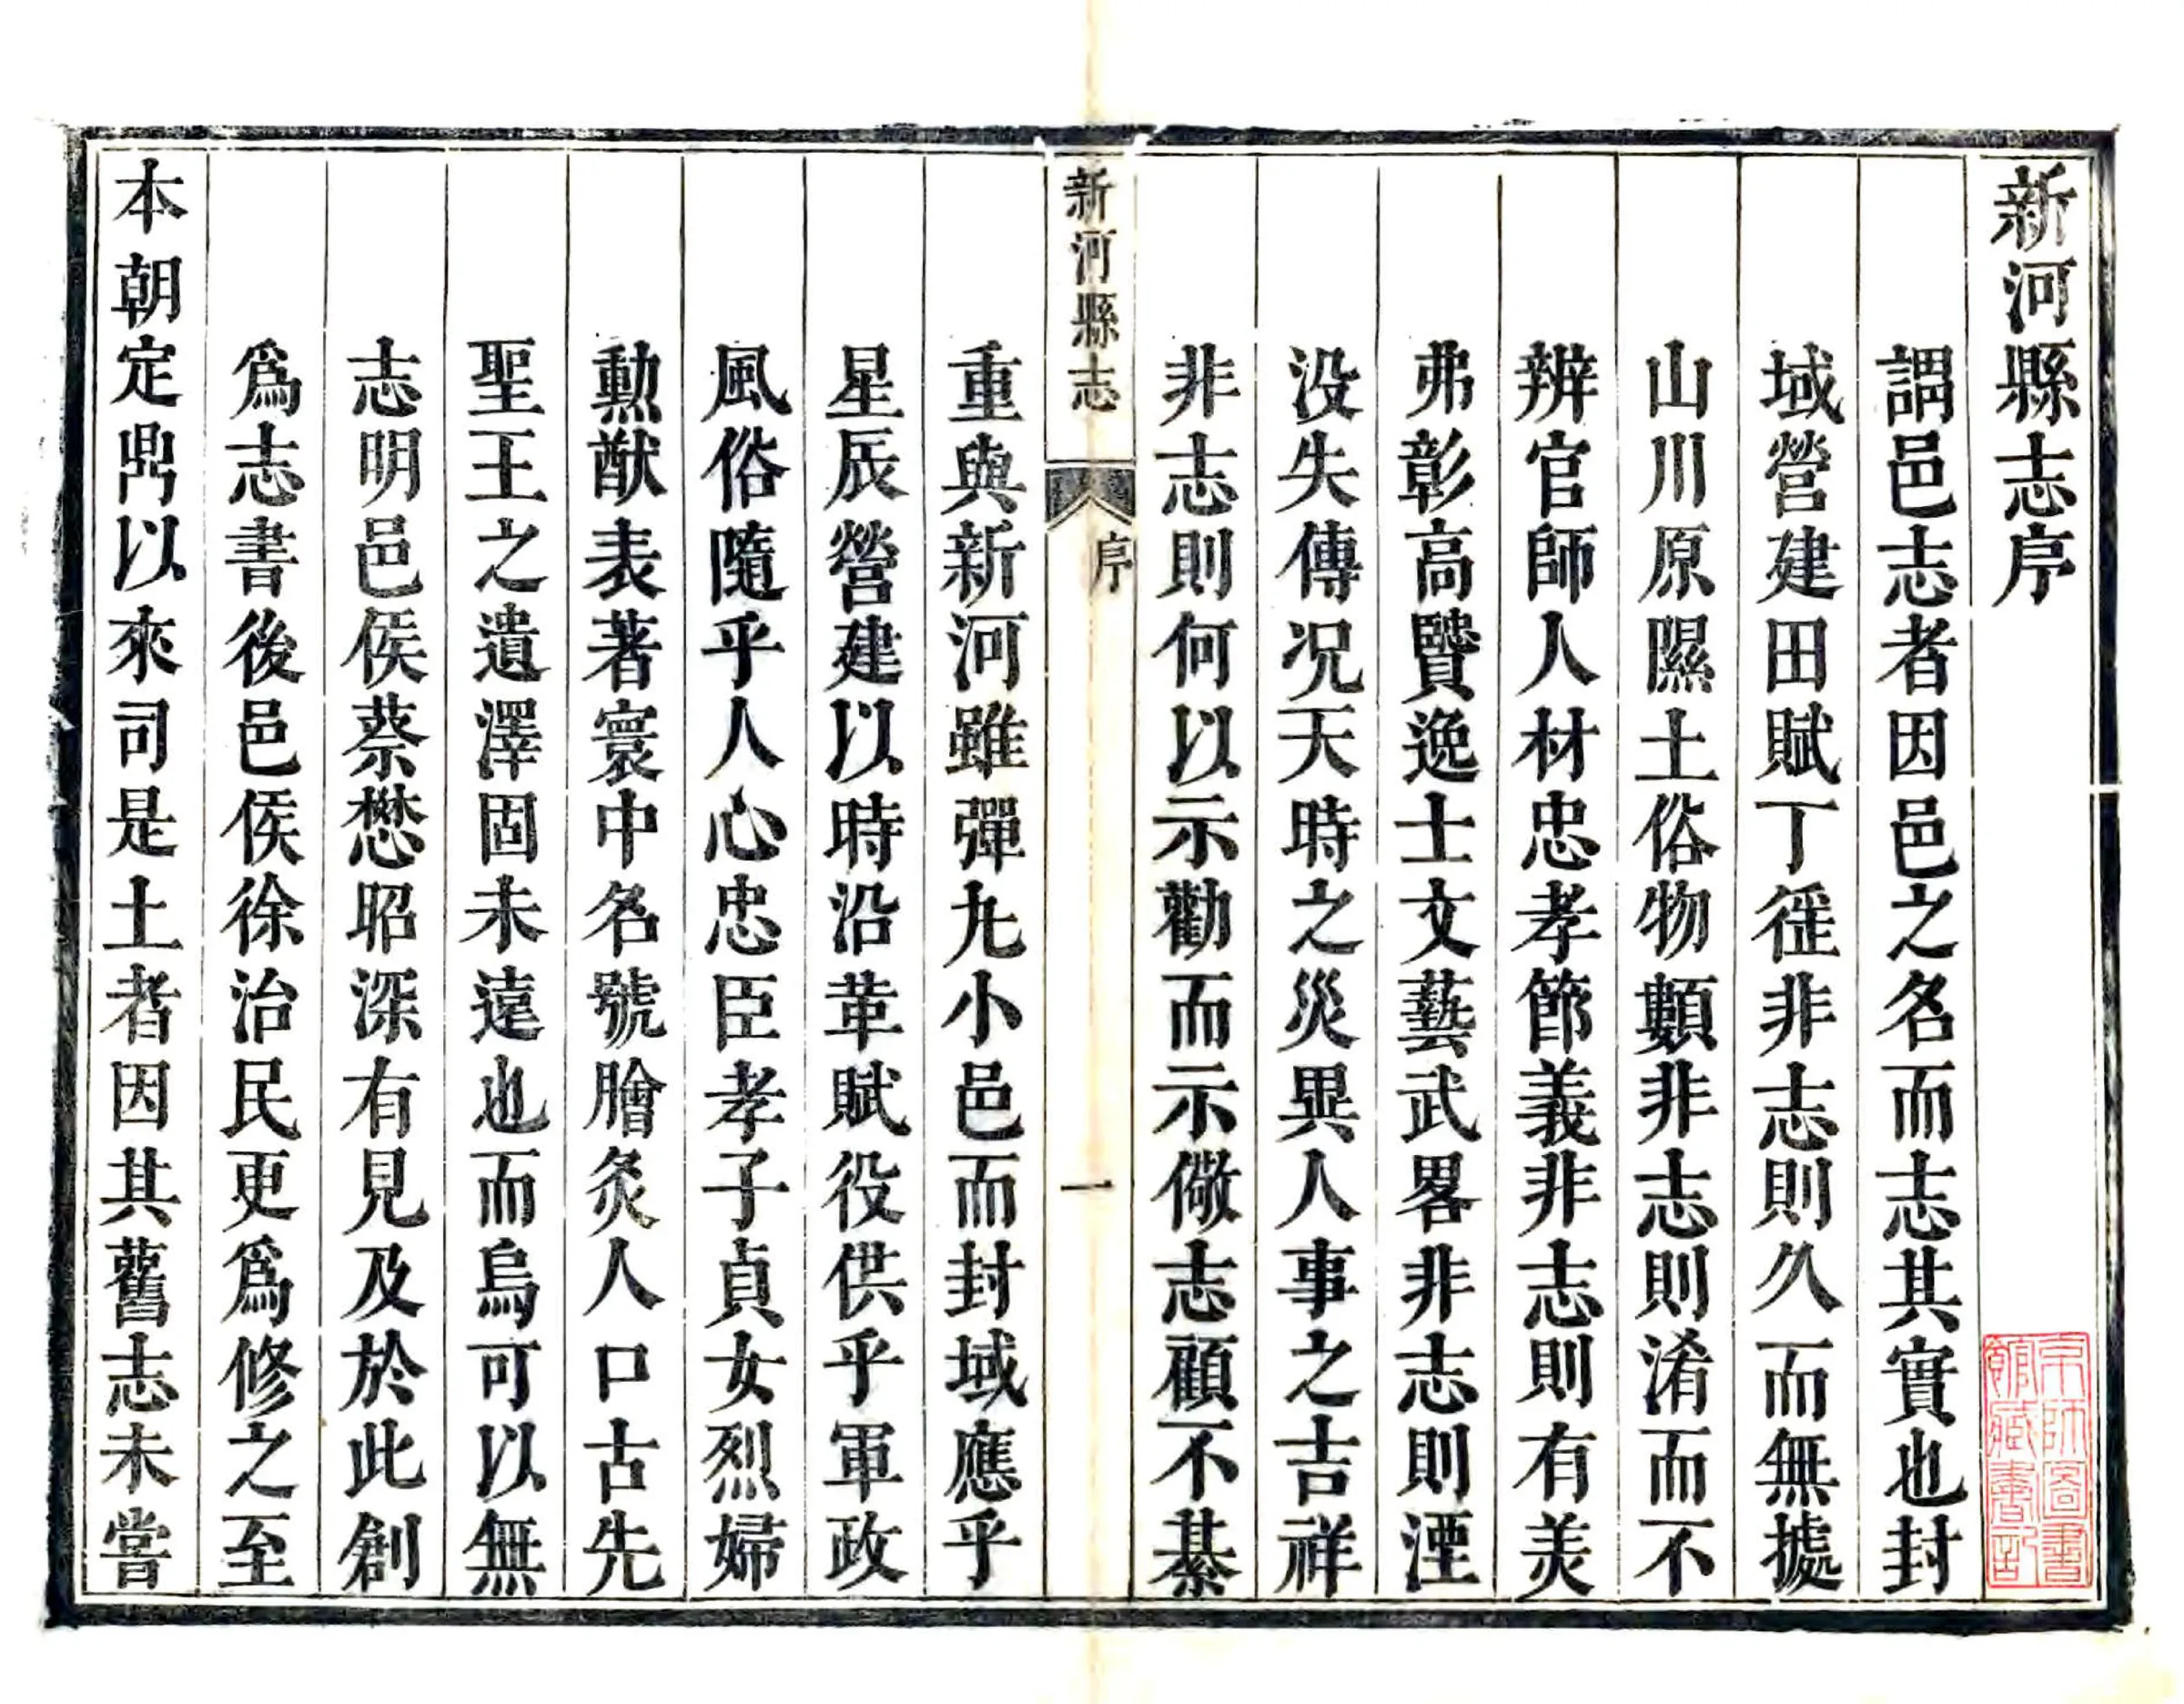 新河縣志序
謂邑志者因邑之名而志其實也封
域營建田賦丁徭非志則久而無據
山川原隰土俗物類非志則淆而不
辨官師人材忠孝節義非志則有美
弗彰高賢逸士文藝武畧非志則湮
没失傳况天時之災異人事之吉祥
非志則何以示勸而示儆志顧不綦
新河縣志
序
一
重與新河雖彈丸小邑而封域應乎
星辰營建以時沿革賦役供乎軍政
風俗隨乎人心忠臣孝子貞女烈婦
勲猷表著寰中名號膾炙人口古先
聖王之遺澤固未遠也而烏可以無
志明邑侯蔡懋昭深有見及於此創
爲志書後邑侯徐治民更爲修之至
本朝定鼎以來司是土者因其舊志未嘗
京師圖書
館藏書記